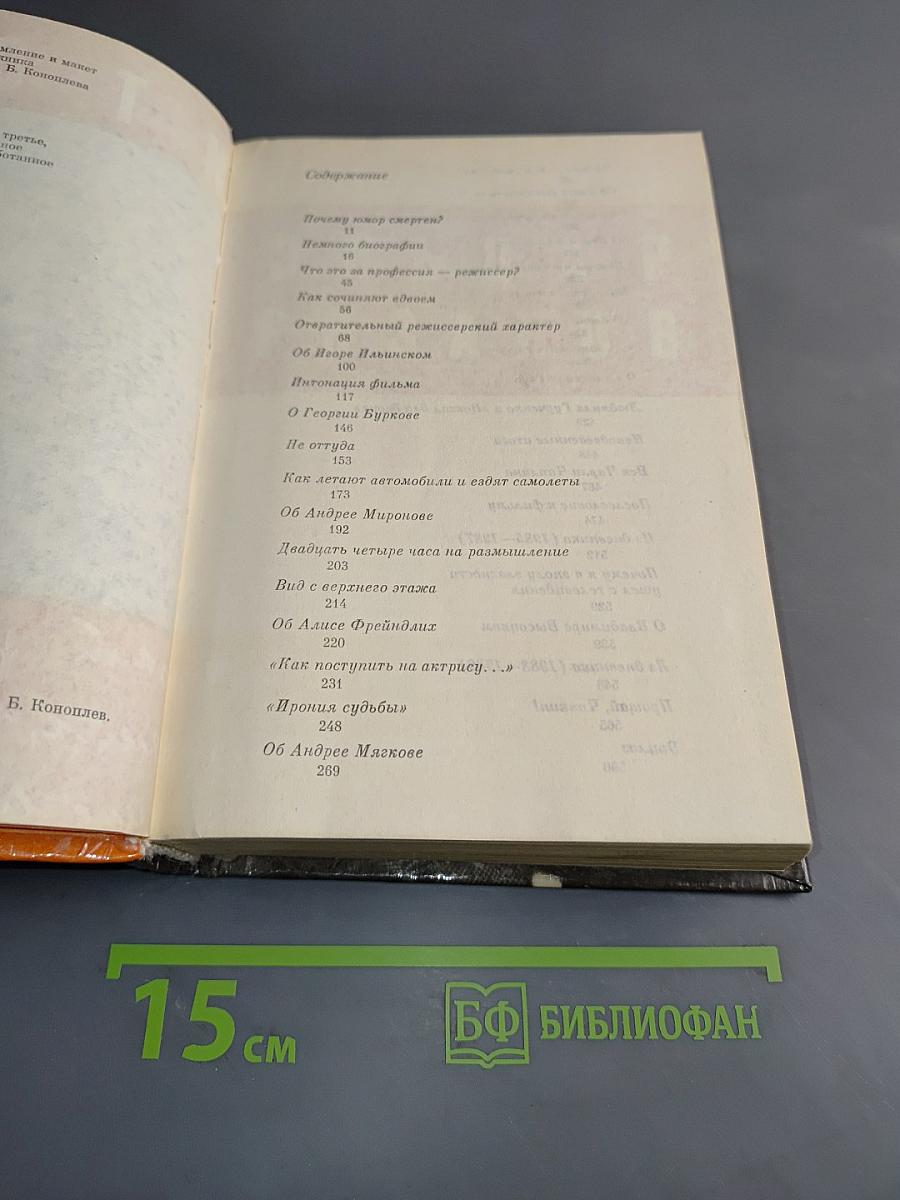 мление и макет
Б. Коноплева
третье,
ное
ботанное
Б. Коноплев.
Содержание
Почему юмор смертен?
11
Немного биографии
16
Что это за профессия — режиссер?
45
Как сочиняют вдвоем
56
Отвратительный режиссерский характер
68
Об Игоре Ильинском
100
Интонация фильма
117
О Георгии Буркове
146
Не оттуда
153
Как летают автомобили и ездят самолеты
173
Об Андрее Миронове
192
Двадцать четыре часа на размышление
203
Вид с верхнего этажа
214
Об Алисе Фрейндлих
220
«Как поступить на актрису...»
231
«Ирония судьбы»
248
Об Андрее Мягкове
269
15 см
БФ БИБЛИОФАН